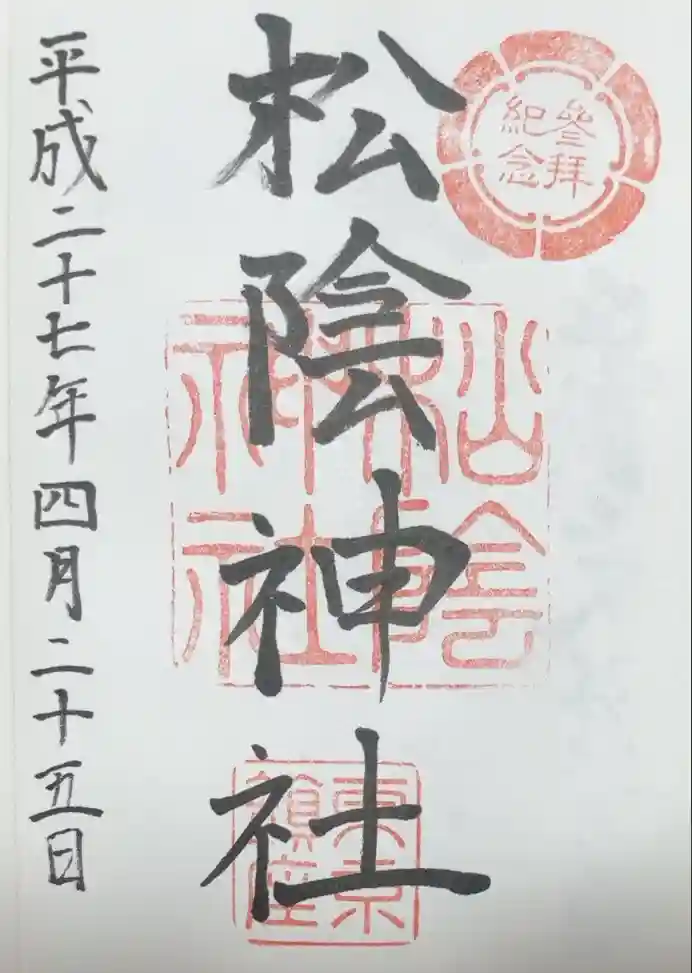 參拜
紀念
松陰神社
松陰
神社
東京
鎮座
平成二十七年四月二十五日